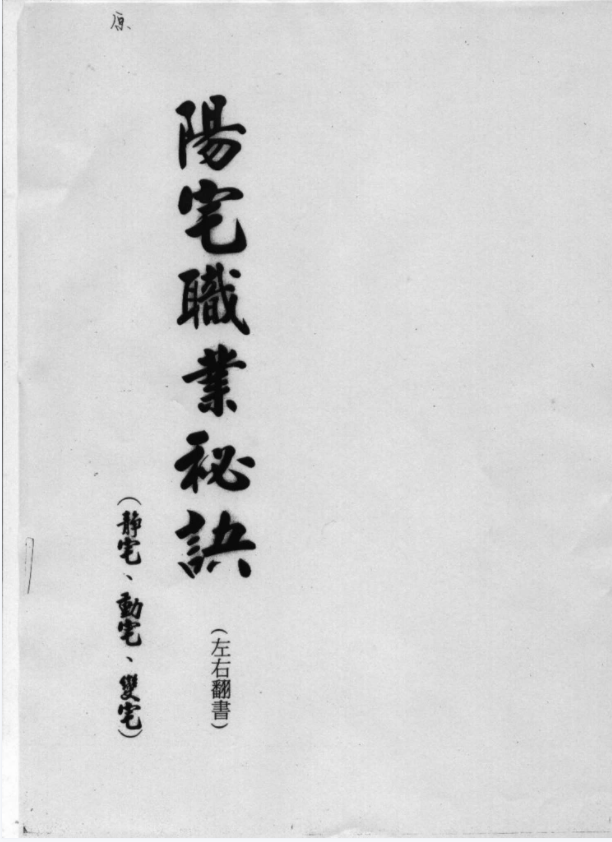 原
陽宅職業祕訣
（左右翻書）
（靜宅、動宅、變宅）